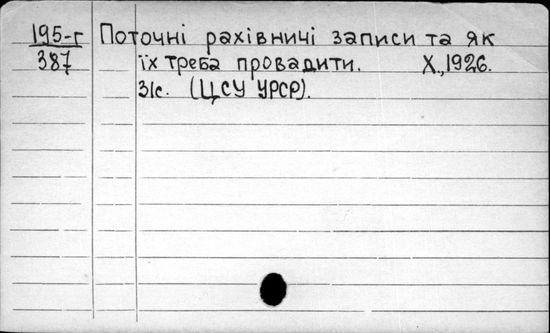 195-г Поточні рахівничі записи та як
387 їх треба провадити. Х.,1926.
31с. (ЦСУ УРСР).